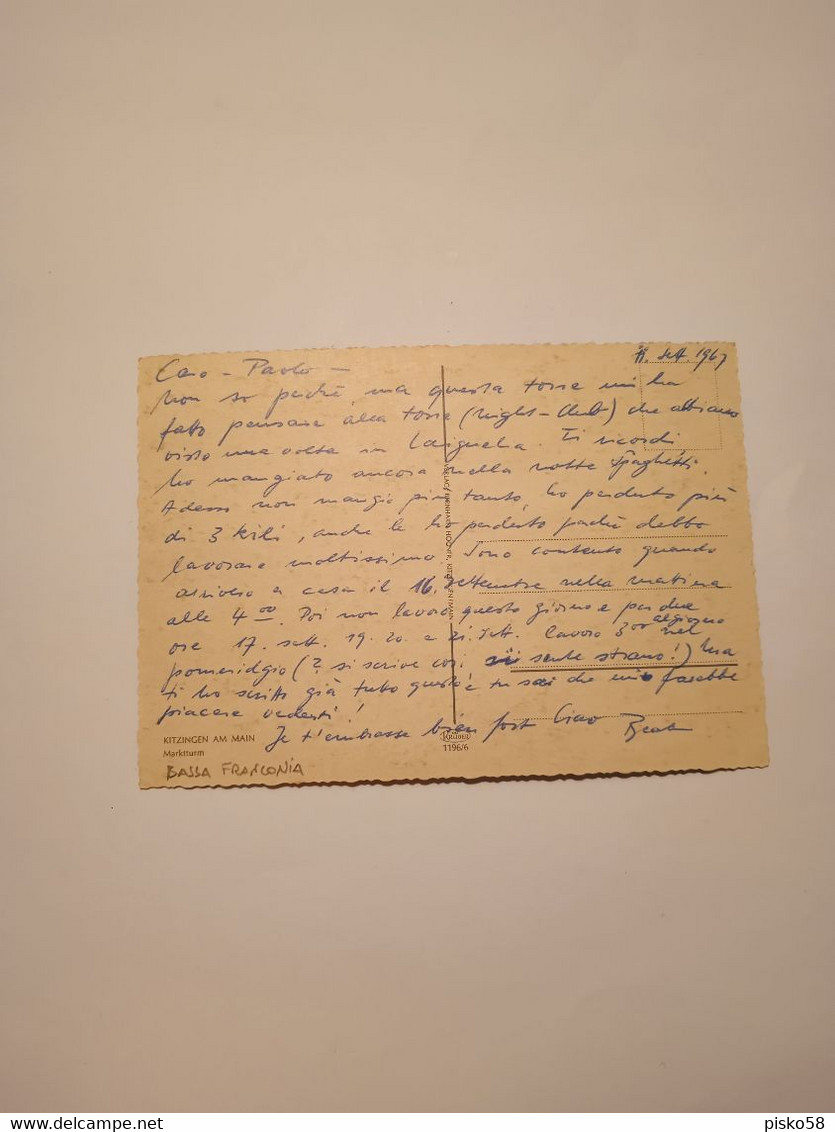 11. Sett. 1967
Caro - Paolo -
Non so perchè, ma questa torre mi ha
fatto pensare alla torre (Night-Club) che abbiamo
visto una volta in Laigueglia. Ti ricordi
ho mangiato ancora nella notte Spaghetti.
Adesso non mangio più tanto, ho perduto più
di 3 kili, anche le ho perduto perchè debbo
lavorare moltissimo. Sono contento quando
arrivero a casa il 16. Settembre nella matina
alle 4 00. Poi non lavoro questo giorno e per due
ore 17. sett. 19. 20. e 21. Sett. lavoro 3 al giorno
nel
pomeridgio (? si scrive così si sente strano!) Ma
ti ho scritto già tutto questo e tu sai che mi farebbe
piacere vederti!
Je t'embrasse bien fort Ciao
KITZINGEN AM MAIN
Marktturm
BASSA FRANCONIA
KRÜGER
1196/6
pisko58